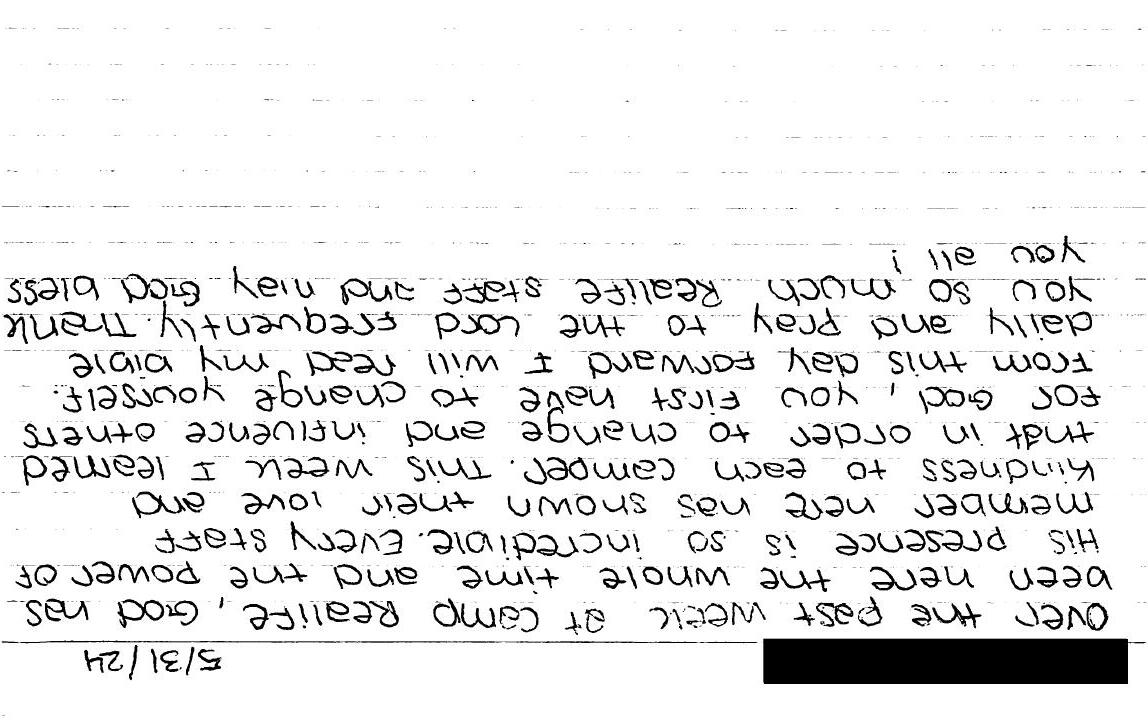 5/31/24
Over the past week at camp Realife, God has
been here the whole time and the power of
His presence is so incredible. Every staff
member here has shown their love and
kindness to each camper. This week I learned
that in order to change and influence others
for God, you first have to change yourself.
From this day forward I will read my bible
daily and pray to the Lord frequently. Thank
you so much Realife staff and may God bless
you all!